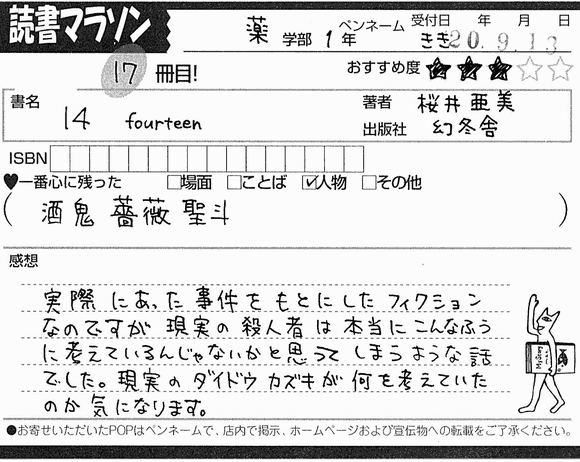 読書マラソン
薬 学部 1 年
ペンネーム きき
受付日 年 月 日
20.9.13
17 冊目!
おすすめ度 ★★★☆☆
書名 14 fourteen
著者 桜井亜美
出版社 幻冬舎
ISBN
♥一番心に残った □場面 □ことば ☑人物 □その他
(酒鬼薔薇聖斗)
感想
実際にあった事件をもとにしたフィクション
なのですが現実の殺人者は本当にこんなふう
に考えているんじゃないかと思ってしまうような話
でした。現実のダイドウカズキが何を考えていた
のか気になります。
●お寄せいただいたPOPはペンネームで、店内で掲示、ホームページおよび宣伝物への転載をご了承ください。